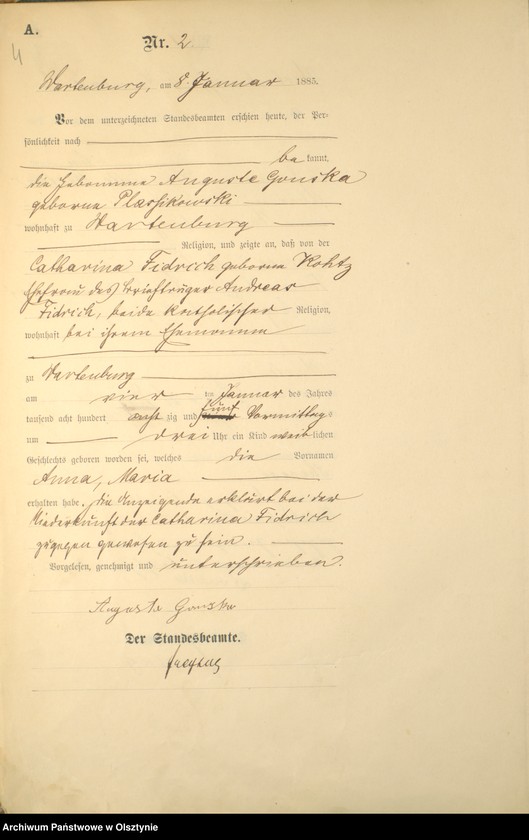 A.
4
Nr. 2
Wartenburg, am 8 Januar 1885.
Vor dem unterzeichneten Standesbeamten erschien heute, der Per-
sönlichkeit nach
be kannt,
die Hebamme Auguste Gonska
geborne Plassikowski
wohnhaft zu Wartenburg
Religion, und zeigte an, daß von der
Catharina Fidrich geborne Kohtz
Ehefrau des Briefträger Andreas
Fidrich, beide katholischer Religion,
wohnhaft bei ihrem Ehemanne
zu Wartenburg
am vier ten Januar des Jahres
tausend acht hundert acht zig und fünf Vormittags
um drei Uhr ein Kind weib lichen
Geschlechts geboren worden sei, welches die Vornamen
Anna, Maria
erhalten habe. Die Anzeigende erklärt bei der
Niederkunft der Catharina Fidrich
zugegen gewesen zu sein.
Vorgelesen, genehmigt und unterschrieben.
Auguste Gonska
Der Standesbeamte.
Archiwum Państwowe w Olsztynie